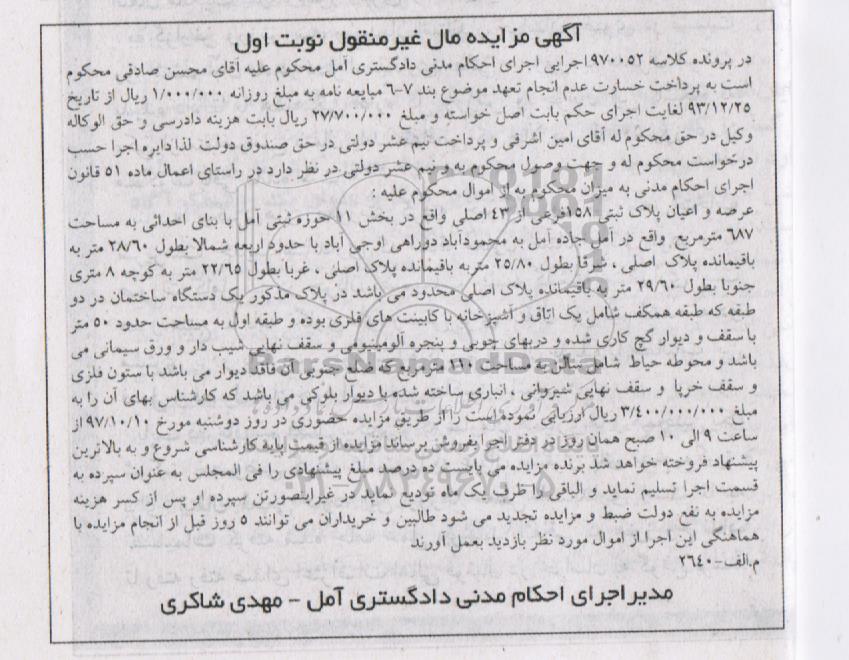 آگهی مزایده مال غیرمنقول نوبت اول
در پرونده کلاسه ۹۷۰۰۵۲ اجرایی اجرای احکام مدنی دادگستری آمل محکوم علیه آقای محسن صادقی محکوم
است به پرداخت خسارت عدم انجام تعهد موضوع بند ۷-۶ مبایعه نامه به مبلغ روزانه ۱/۰۰۰/۰۰۰ ریال از تاریخ
۹۳/۱۲/۲۵ لغایت اجرای حکم بابت اصل خواسته و مبلغ ۲۷/۷۰۰/۰۰۰ ریال بابت هزینه دادرسی و حق الوکاله
وکیل در حق محکوم له آقای امین اشرفی و پرداخت نیم عشر دولتی در حق صندوق دولت. لذا دایره اجرا حسب
درخواست محکوم له و جهت وصول محکوم به و نیم عشر دولتی در نظر دارد در راستای اعمال ماده ۵۱ قانون
اجرای احکام مدنی به میزان محکوم به از اموال محکوم علیه :
عرصه و اعیان پلاک ثبتی ۱۵۸فرعی از ۴۳ اصلی واقع در بخش ۱۱ حوزه ثبتی آمل با بنای احداثی به مساحت
۶۸۷ مترمربع واقع در آمل جاده آمل به محمودآباد دوراهی اوجی آباد با حدود اربعه شمالا بطول ۲۸/۶۰ متر به
باقیمانده پلاک اصلی ، شرقا بطول ۲۵/۸۰ متربه باقیمانده پلاک اصلی ، غربا بطول ۲۲/۶۵ متر به کوچه ۸ متری
جنوبا بطول ۲۹/۶۰ متر به باقیمانده پلاک اصلی محدود می باشد در پلاک مذکور یک دستگاه ساختمان در دو
طبقه که طبقه همکف شامل یک اتاق و آشپزخانه با کابینت های فلزی بوده و طبقه اول به مساحت حدود ۵۰ متر
با سقف و دیوار گچ کاری شده و دربهای چوبی و پنجره آلومینیومی و سقف نهایی شیب دار و ورق سیمانی می
باشد و محوطه حیاط شامل سالن به مساحت ۱۱۰ مترمربع که ضلع جنوبی آن فاقد دیوار می باشد با ستون فلزی
و سقف خرپا و سقف نهایی شیروانی ، انباری ساخته شده با دیوار بلوکی می باشد که کارشناسی بهای آن را به
مبلغ ۳/۴۰۰/۰۰۰/۰۰۰ ریال ارزیابی نموده است را از طریق مزایده حضوری در روز دوشنبه مورخ ۹۷/۱۰/۱۰ از
ساعت ۹ الی ۱۰ صبح همان روز در دفتر اجرا بفروش برساند مزایده از قیمت پایه کارشناسی شروع و به بالاترین
پیشنهاد فروخته خواهد شد برنده مزایده می بایست ده درصد مبلغ پیشنهادی را فی المجلس به عنوان سپرده به
قسمت اجرا تسلیم نماید و الباقی را ظرف یک ماه تودیع نماید در غیراینصورتن سپرده او پس از کسر هزینه
مزایده به نفع دولت ضبط و مزایده تجدید می شود طالبین و خریداران می توانند ۵ روز قبل از انجام مزایده با
هماهنگی این اجرا از اموال مورد نظر بازدید بعمل آورند
م.الف-۲۶۴۰
مدیر اجرای احکام مدنی دادگستری آمل - مهدی شاکری
ParsNamadData
۰۲۱-۸۸۳۴۹۶۷۰-۵